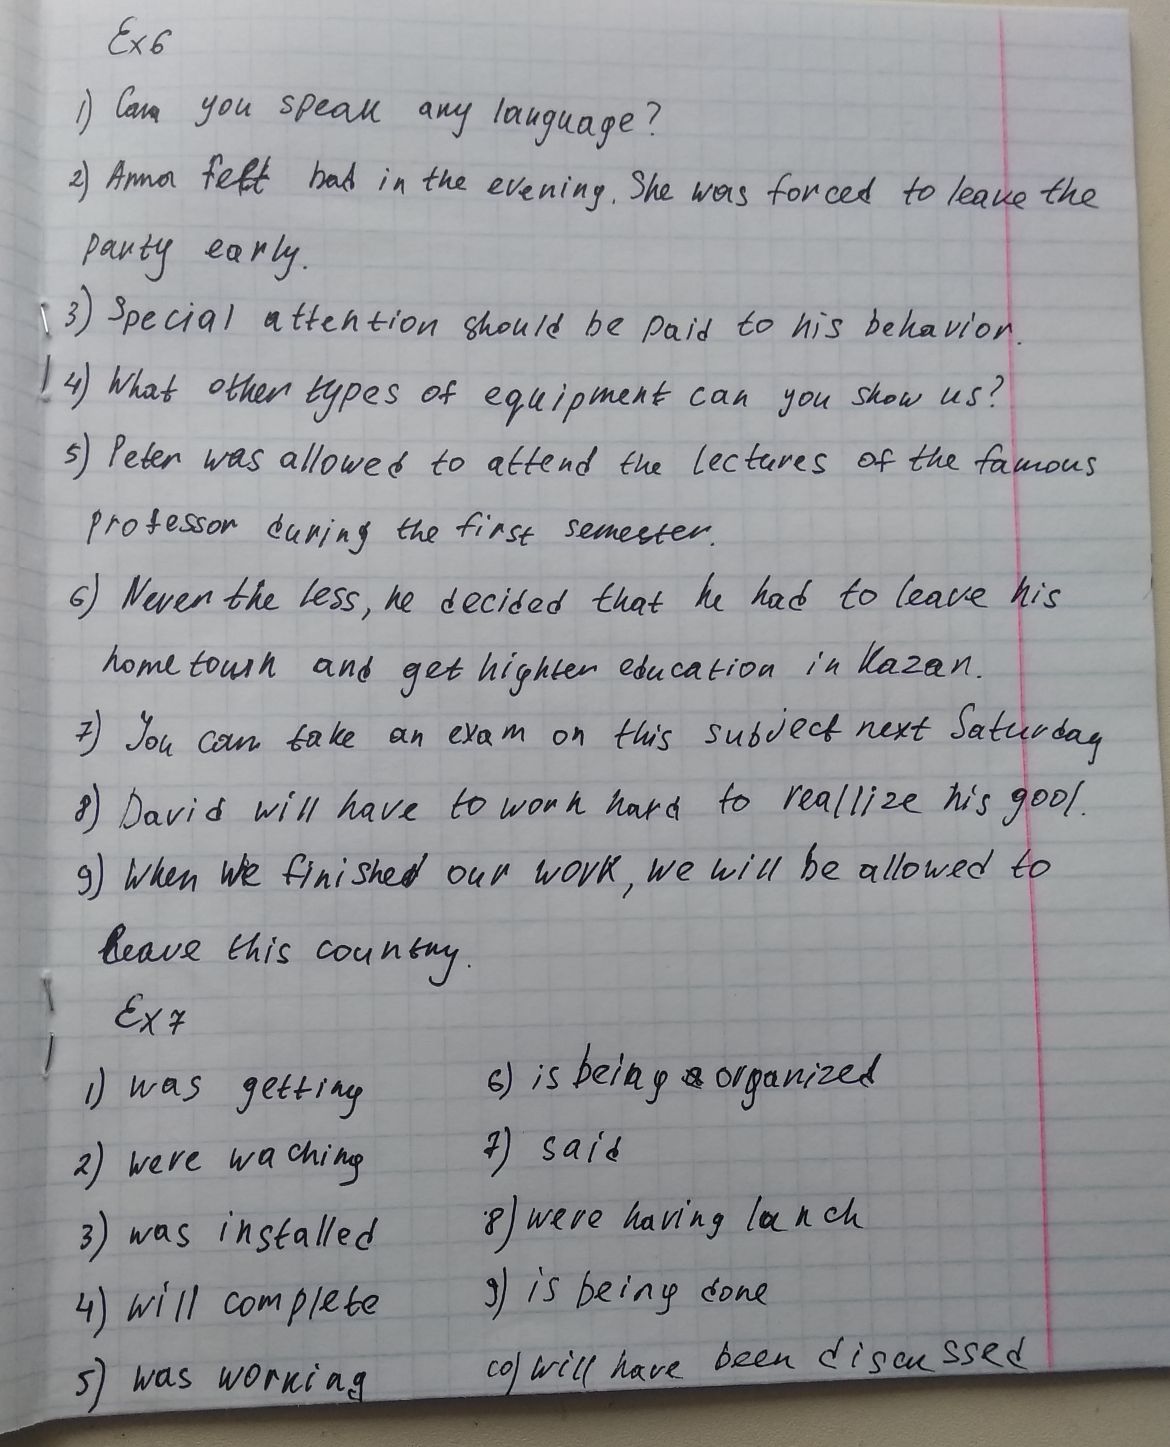 Ex6
1) Can you speak any language?
2) Anna felt bad in the evening. She was forced to leave the
party early.
3) Special attention should be paid to his behavior.
4) What other types of equipment can you show us?
5) Peter was allowed to attend the lectures of the famous
professor during the first semester.
6) Never the less, he decided that he had to leave his
hometown and get highter education in Kazan.
7) You can take an exam on this subject next Saturday
8) David will have to work hard to reallize his gool.
9) When we finished our work, we will be allowed to
leave this country.
Ex7
1) was getting
2) were waching
3) was installed
4) will complete
5) was working
6) is being organized
7) said
8) were having lanch
9) is being done
10) will have been discussed